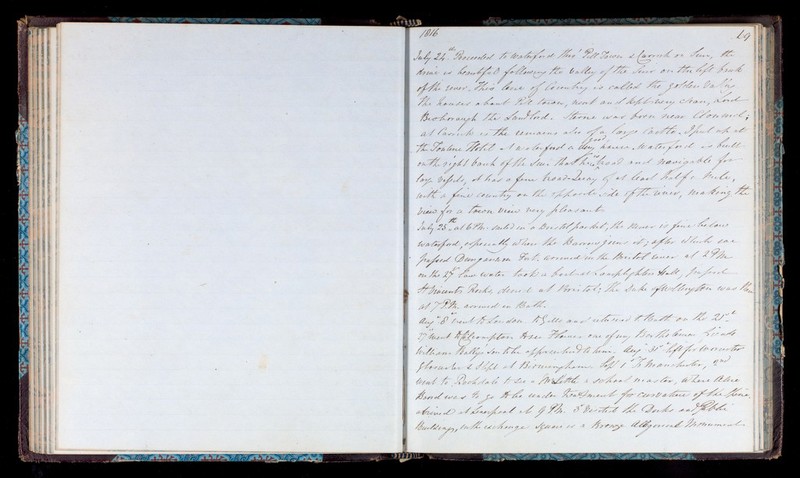 1816
July 24th Proceeded to Waterford thro' Pill Town & Carrick on Suir, the
drive is beautiful following the valley of the Suir on the left bank
of the river. This line of Country is called the golden valley
the houses about Pill town, neat and kept very clean, Lord
Besborough the Landlord. Sterne was born near Clonmel;
at Carrick is the remains also of a large Castle. I put up at
the Hotel at Waterford a very good house. Waterford is built
on the right bank of the Suir that is here broad and navigable for
large vessels, it has a fine broad Quay of at least half a Mile,
with a fine country on the opposite side of the river, making the
view for a town view very pleasant.
July 25th at 6 PM. sailed in a Bristol packet, the river is fine below
Waterford, especially where the Barrow joins it; after which we
passed Duncannon Fort, arrived in the Bristol river at 2 PM
on the 27th Low water took a boat at Lamplighters Hall, passed
St Vincents Rocks, dined at Bristol; the Duke of Wellington was there
at 7 PM arrived in Bath.
Aug 8 went to London and returned to Bath on the 25th
27 went to to see one of my
William to be apprenticed to him. Aug 31st left for Worcester
Gloucester & slept at Birmingham. Sep 1st to Manchester, and
went to Rochdale to see a school master, where
was to go to be under treatment for curvature of the spine,
arrived at Liverpool at 9 PM. 3d visited the Docks and Public
Buildings, in the exchange Square is a Bronze Monument